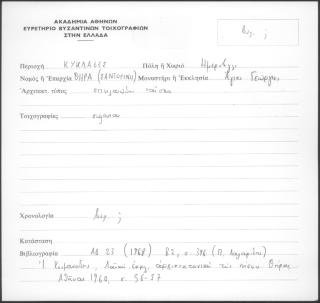 ΑΚΑΔΗΜΙΑ ΑΘΗΝΩΝ
ΕΥΡΕΤΗΡΙΟ ΒΥΖΑΝΤΙΝΩΝ ΤΟΙΧΟΓΡΑΦΙΩΝ
ΣΤΗΝ ΕΛΛΑΔΑ
Βυζ. ;
Περιοχή ΚΥΚΛΑΔΕΣ Πόλη ή Χωριό Ημεροβίγλι
Νομός ή Ἐπαρχία ΘΗΡΑ (ΣΑΝΤΟΡΙΝΗ) Μοναστήρι ή Ἐκκλησία Άγιος Γεώργιος
Ἀρχιτεκτ. τύπος
Τοιχογραφίες
Χρονολογία Βυζ. ;
Κατάσταση
Βιβλιογραφία ΑΔ 23 (1968) Β2, σ. 396 (Π. Λαζαρίδης)
Λαϊκή τῆς νήσου Θήρας
Ἀθῆναι 1960, σ. 56-57